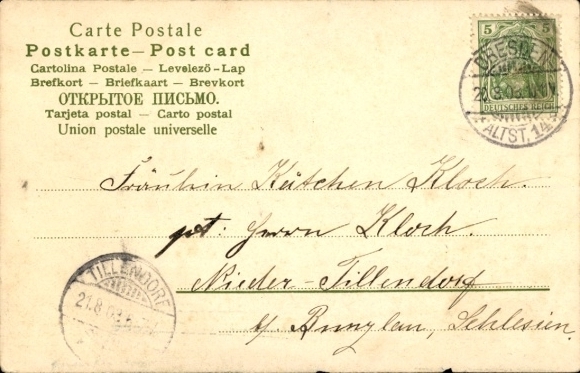 Carte Postale
Postkarte — Post card
Cartolina Postale — Levelező-Lap
Brefkort — Briefkaart — Brevkort
ОТКРЫТОЕ ПИСЬМО.
Tarjeta postal — Carto postal
Union postale universelle
5 5
DEUTSCHES REICH
DRESDEN
ALTST. 14
Fräulein Kätchen Kloch.
pt: Herrn Kloch.
Nieder-Tillendorf
b/ Bunzlau, Schlesien.
TILLENDORF
21.8.03